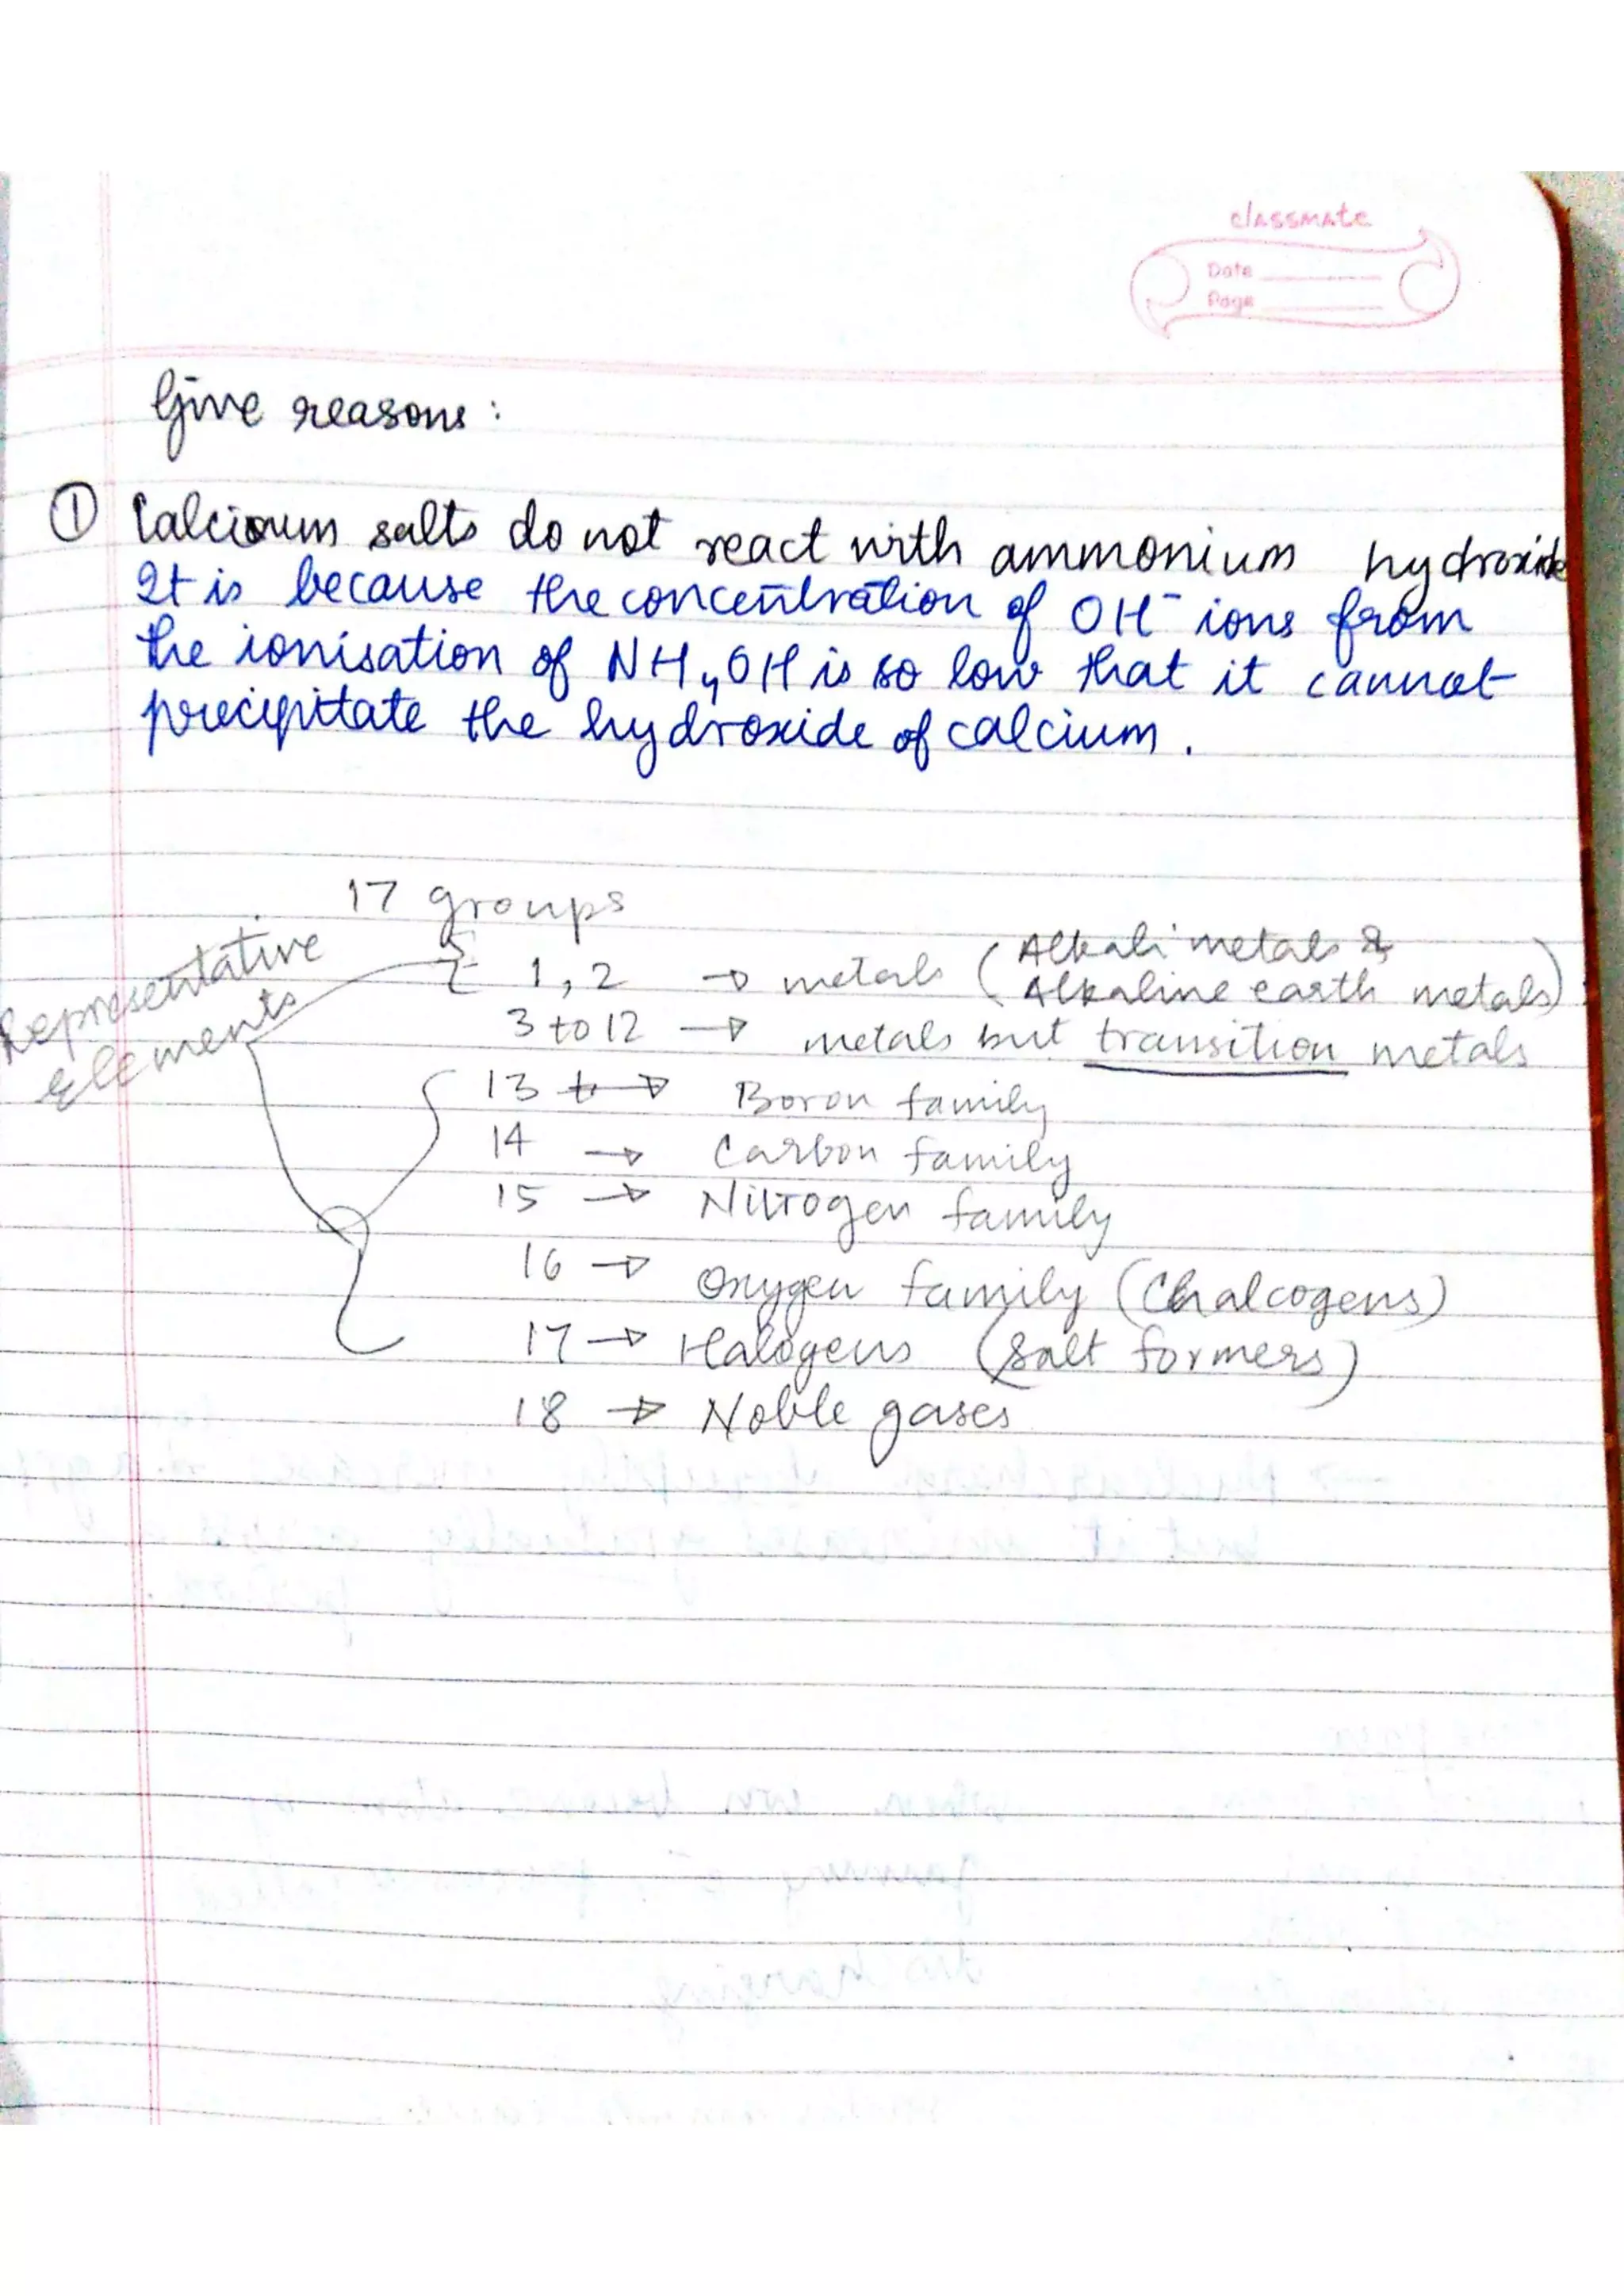 classmate
Date
Page
Give reasons:
① Calcium salts do not react with ammonium hydroxide
It is because the concentration of OH⁻ ions from
the ionisation of NH₄OH is so low that it cannot
precipitate the hydroxide of calcium.
17 groups
Representative
Elements
1, 2 → metals (Alkali metals &
Alkaline earth metals)
3 to 12 → metals but transition metals
13 → Boron family
14 → Carbon family
15 → Nitrogen family
16 → Oxygen family (Chalcogens)
17 → Halogens (Salt formers)
18 → Noble gases